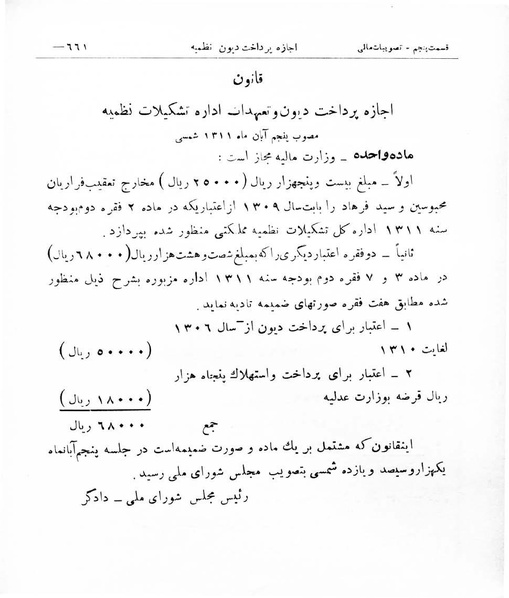 قسمت پنجم - تصویبات مالی    اجازه پرداخت دیون نظمیه    ـ۶۶۱ـ
قانون
اجازه پرداخت دیون و تعهدات اداره تشکیلات نظمیه
مصوب پنجم آبان ماه ۱۳۱۱ شمسی
ماده واحده ـ وزارت مالیه مجاز است :
اولاً ـ مبلغ بیست و پنجهزار ریال (۲۵۰۰۰ ریال) مخارج تعقیب فراریان
محبوسین و سید فرهاد را بابت سال ۱۳۰۹ از اعتباریکه در ماده ۲ فقره دوم بودجه
سنه ۱۳۱۱ اداره کل تشکیلات نظمیه مملکتی منظور شده بپردازد .
ثانیاً ـ دو فقره اعتبار دیگری را که بمبلغ شصت و هشت هزار ریال (۶۸۰۰۰ ریال)
در ماده ۳ و ۷ فقره دوم بودجه سنه ۱۳۱۱ اداره مزبوره بشرح ذیل منظور
شده مطابق هفت فقره صورتهای ضمیمه تادیه نماید .
۱ ـ اعتبار برای پرداخت دیون از سال ۱۳۰۶
لغایت ۱۳۱۰    (۵۰۰۰۰ ریال)
۲ ـ اعتبار برای پرداخت و استهلاک پنجاه هزار
ریال قرضه بوزارت عدلیه    (۱۸۰۰۰ ریال)
جمع    ۶۸۰۰۰ ریال
اینقانون که مشتمل بر یك ماده و صورت ضمیمه است در جلسه پنجم آبانماه
یکهزار و سیصد و یازده شمسی بتصویب مجلس شورای ملی رسید .
رئیس مجلس شورای ملی ـ دادگر